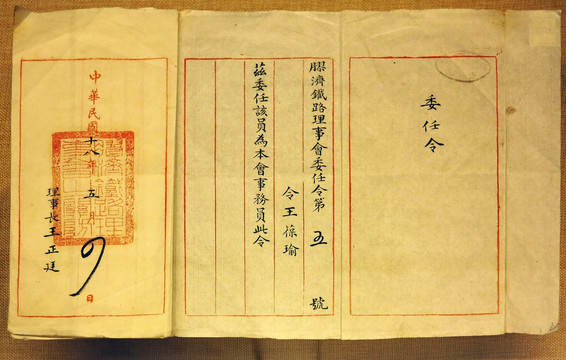 委任令
膠濟鐵路理事會委任令第五號
令王保瑜
茲委任該員為本會事務員此令
中華民國十八年五月9日
理事長王正廷